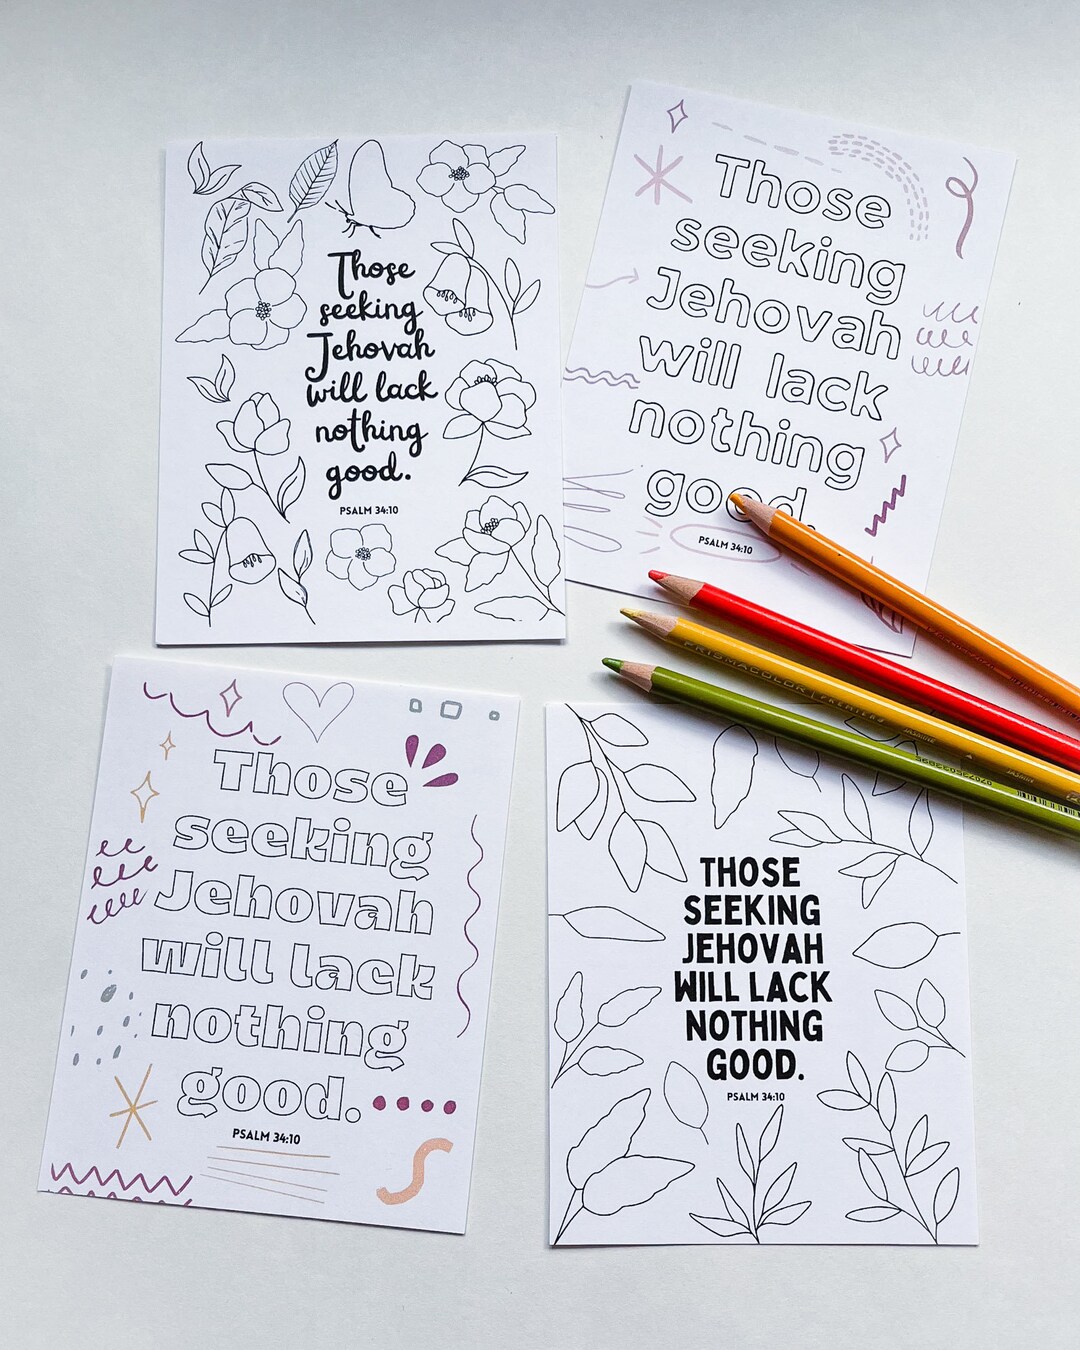 Those
seeking
Jehovah
will lack
nothing
good.
PSALM 34:10
Those
seeking
Jehovah
will lack
nothing
good.
PSALM 34:10
PRISMACOLOR | PREMIER
JASMINE
Those
seeking
Jehovah
will lack
nothing
good.
PSALM 34:10
THOSE
SEEKING
JEHOVAH
WILL LACK
NOTHING
GOOD.
PSALM 34:10